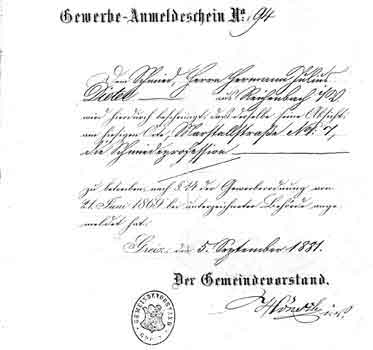 Gewerbe-Anmeldeschein No. 94
Dem Schmied Herrn Hermann Julius
Dietel aus Reichenbach i/V
wird hierdurch bescheinigt, daß derselbe seine Absicht,
am hiesigen Orte, Marstallstraße No. 7,
die Schmiedeprofession
zu betreiben, nach § 14 der Gewerbeordnung vom
21. Juni 1869 bei unterzeichneter Behörde ange-
meldet hat.
Greiz, den 5. September 1881.
Der Gemeindevorstand.
GEMEINDEVORSTAND